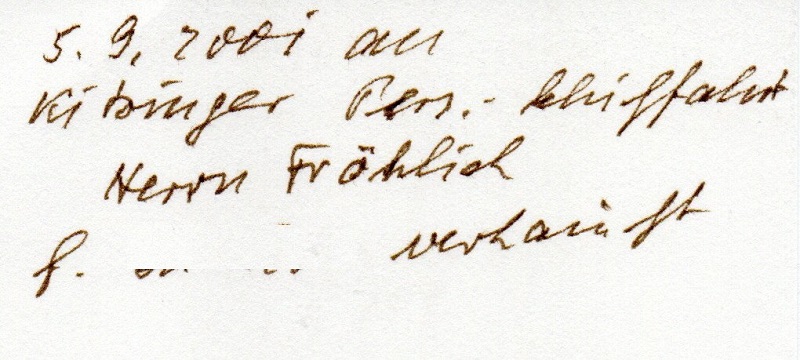 5. 9. 2001 an
Kitzinger Pers.- Schiffahrt
Herrn Fröhlich
f. verkauft